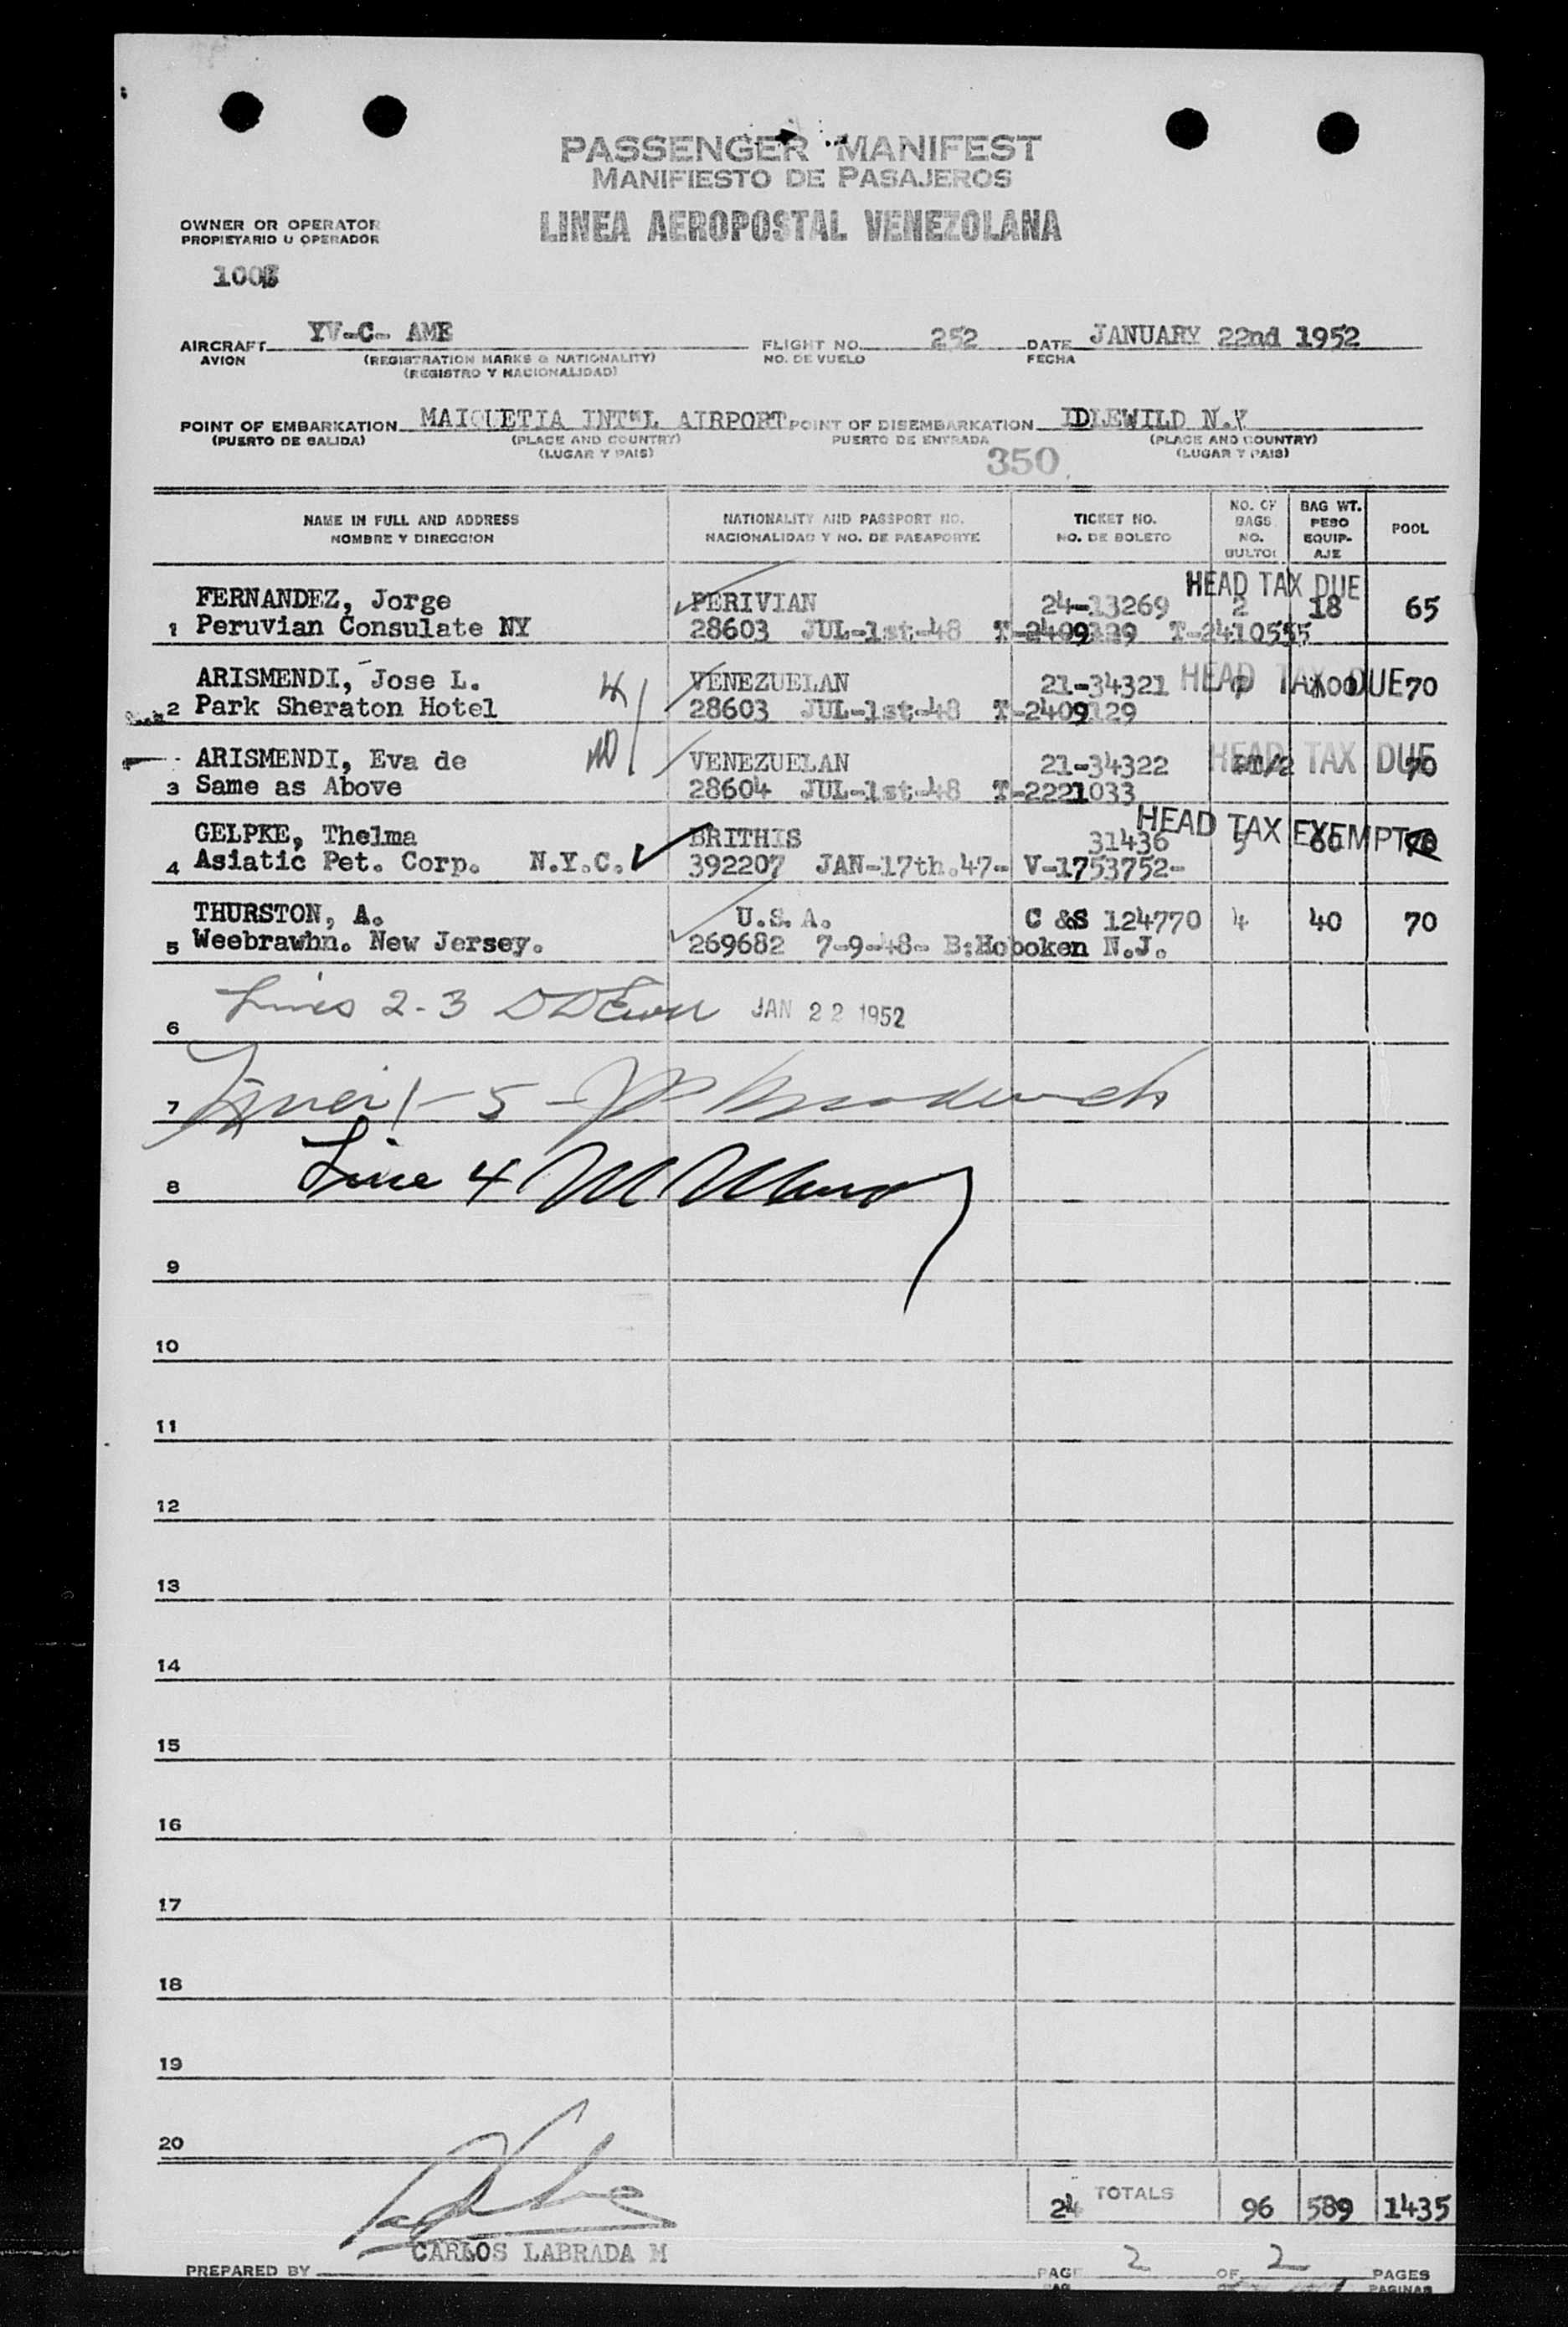 PASSENGER MANIFEST
MANIFIESTO DE PASAJEROS
LINEA AEROPOSTAL VENEZOLANA
OWNER OR OPERATOR
PROPIETARIO U OPERADOR
AIRCRAFT YV-C- AME FLIGHT NO. 252 DATE JANUARY 22nd 1952
AVION (REGISTRATION MARKS & NATIONALITY) NO. DE VUELO FECHA
(REGISTRO Y NACIONALIDAD)
POINT OF EMBARKATION MAIQUETIA INT"L AIRPORT POINT OF DISEMBARKATION IDLEWILD N.Y
(PUERTO DE SALIDA) (PLACE AND COUNTRY) PUERTO DE ENTRADA (PLACE AND COUNTRY)
(LUGAR Y PAIS) 350 (LUGAR Y PAIS)
NAME IN FULL AND ADDRESS NATIONALITY AND PASSPORT NO. TICKET NO. NO. OF BAGS BAG WT. POOL
NOMBRE Y DIRECCION NACIONALIDAD Y NO. DE PASAPORTE NO. DE BOLETO NO. BULTOS PESO EQUIP-AJE
HEAD TAX DUE
FERNANDEZ, Jorge PERIVIAN 24-13269 2 18 65
1 Peruvian Consulate NY 28603 JUL-1st-48 T-2409129 T-2410555
ARISMENDI, Jose L. 4 VENEZUELAN 21-34321 HEAD TAX DUE 70
2 Park Sheraton Hotel 28603 JUL-1st-48 T-2409129
ARISMENDI, Eva de VENEZUELAN 21-34322 HEAD TAX DUE 70
3 Same as Above 28604 JUL-1st-48 T-2221033
HEAD TAX EXEMPT
GELPKE, Thelma BRITHIS 31436 5 60 70
4 Asiatic Pet. Corp. N.Y.C. 392207 JAN-17th.47- V-1753752-
THURSTON, A. U.S.A. C &S 124770 4 40 70
5 Weebrawhn. New Jersey. 269682 7-9-48- B:Hoboken N.J.
6 Lines 2-3 JAN 22 1952
7 Lines 1-5
8 Line 4
9
10
11
12
13
14
15
16
17
18
19
20
24 TOTALS 96 589 1435
CARLOS LABRADA M
PREPARED BY PAGE 2 OF 2 PAGES
PAG PAGINAS